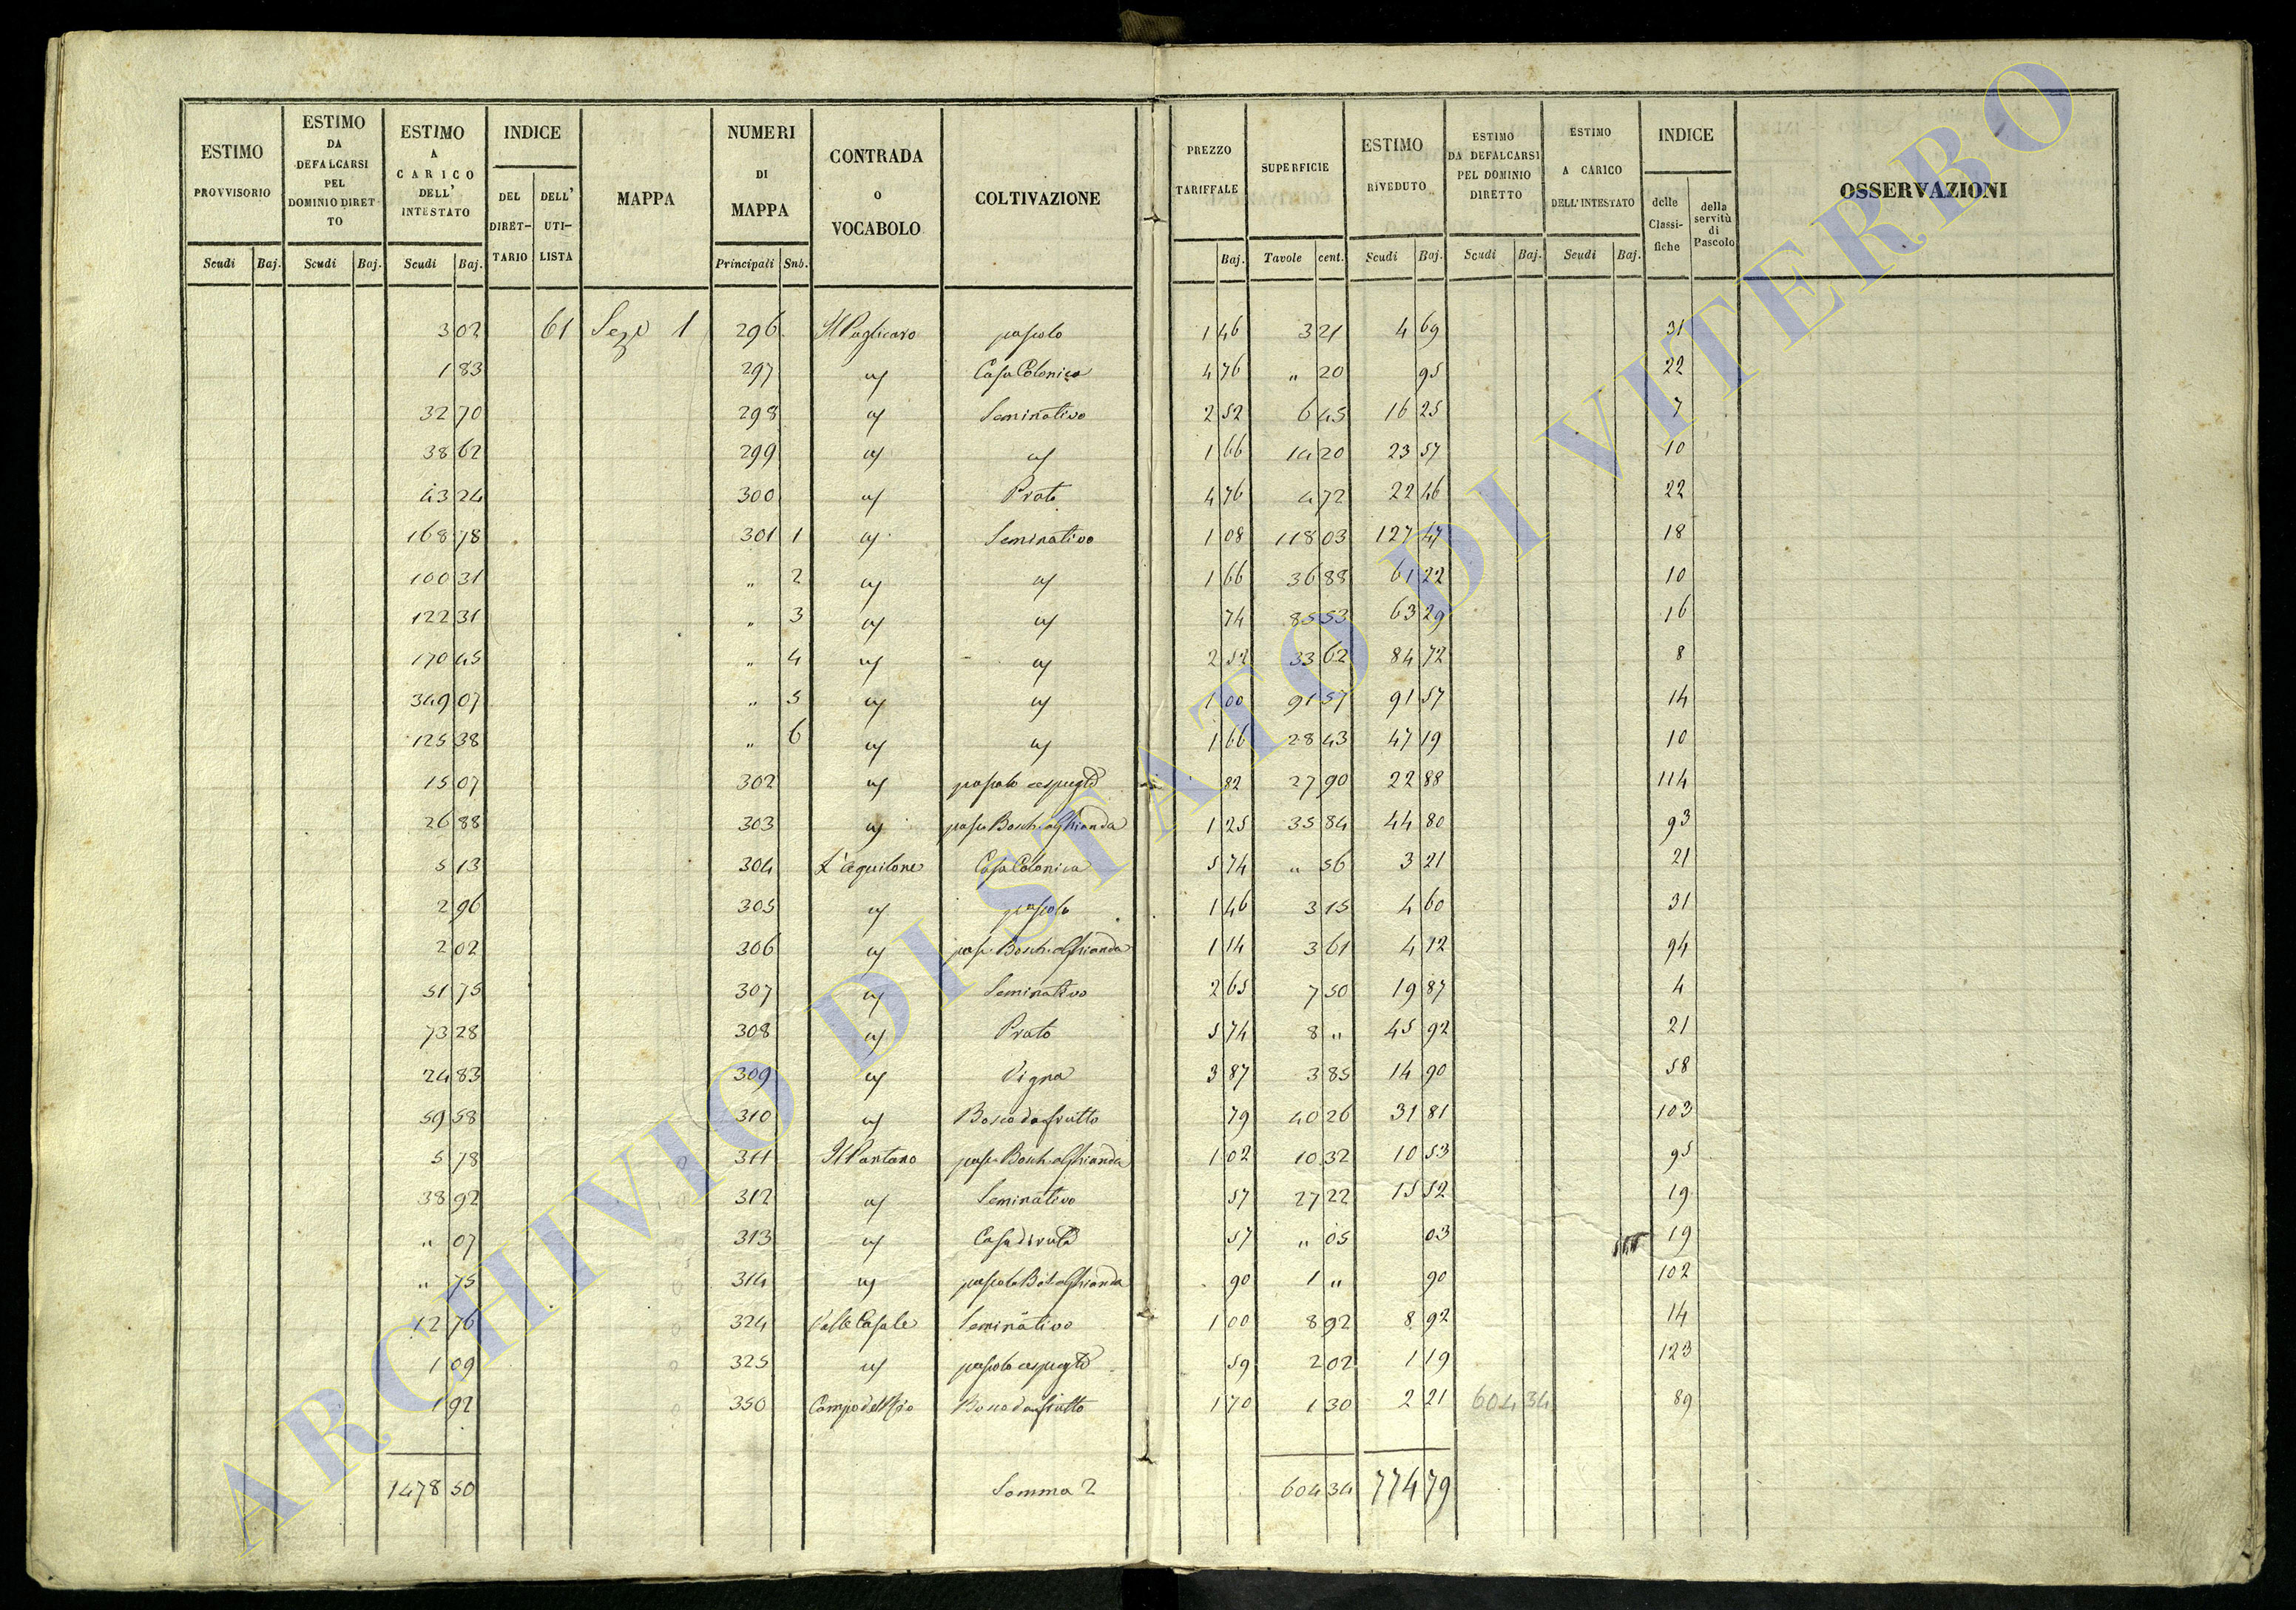 ESTIMO PROVVISORIO Scudi Baj.
ESTIMO DA DEFALCARSI PEL DOMINIO DIRET TO Scudi Baj.
ESTIMO A CARICO DELL' INTESTATO Scudi Baj.
INDICE DEL DIRET- TARIO DELL' UTI- LISTA
MAPPA
NUMERI DI MAPPA Principali Sub.
CONTRADA O VOCABOLO
COLTIVAZIONE
PREZZO TARIFFALE Baj.
SUPERFICIE Tavole cent.
ESTIMO RIVEDUTO Scudi Baj.
ESTIMO DA DEFALCARSI PEL DOMINIO DIRETTO Scudi Baj.
ESTIMO A CARICO DELL'INTESTATO Scudi Baj.
INDICE delle Classi- fiche della servitù di Pascolo
OSSERVAZIONI
3 02 61 Sez 1 296 Il Paglicaro pascolo 1 46 3 21 4 69 31
1 83 297 " Casa Colonica 4 76 " 20 95 22
32 70 298 " Seminativo 2 52 6 45 16 25 7
38 62 299 " " 1 66 14 20 23 57 10
43 24 300 " Prato 4 76 4 72 22 46 22
168 78 301 1 " Seminativo 1 08 118 03 127 47 18
100 31 " 2 " " 1 66 36 88 61 22 10
122 31 " 3 " " 74 85 53 63 29 16
170 45 " 4 " " 2 52 33 62 84 72 8
349 07 " 5 " " 1 00 91 57 91 57 14
125 38 " 6 " " 1 66 28 43 47 19 10
15 07 302 " pascolo cespugto 82 27 90 22 88 114
26 88 303 " pasc Bosch a Ghianda 1 25 35 84 44 80 93
5 13 304 L'aquilone Casa Colonica 5 74 " 56 3 21 21
2 96 305 " pascolo 1 46 3 15 4 60 31
2 02 306 " pasc Bosch a Ghianda 1 14 3 61 4 12 94
51 75 307 " Seminativo 2 65 7 50 19 87 4
73 28 308 " Prato 5 74 8 " 45 92 21
24 83 309 " Vigna 3 87 3 85 14 90 58
59 58 310 " Bosco da frutto 79 40 26 31 81 103
5 78 311 Il Pantano pasc Bosch a Ghianda 1 02 10 32 10 53 95
38 92 312 " Seminativo 57 27 22 15 52 19
" 07 313 " Casa diruta 57 " 05 03 19
" 75 314 " pascolo Bo a Ghianda 90 1 " 90 102
12 76 324 Valle Casale Seminativo 1 00 8 92 8 92 14
1 09 325 " pascolo cespugto 59 2 02 1 19 123
1 92 350 Campo del Rio Bosco da frutto 1 70 1 30 2 21 604 34 89
1478 50 Somma 2 604 34 774 79
ARCHIVIO DI STATO DI VITERBO